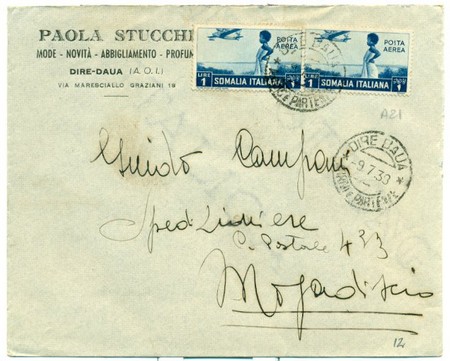 PAOLA STUCCHI
MODE - NOVITÀ - ABBIGLIAMENTO - PROFUM
DIRE-DAUA (A.O.I.)
VIA MARESCIALLO GRAZIANI 19
POSTA
AEREA
LIRE
1
SOMALIA ITALIANA
1
POSTA
AEREA
LIRE
1
SOMALIA ITALIANA
1
A21
DIRE DAUA
-9.7.38
Guido Campani
Spedizioniere
C. Postale 433
Mogadiscio
12